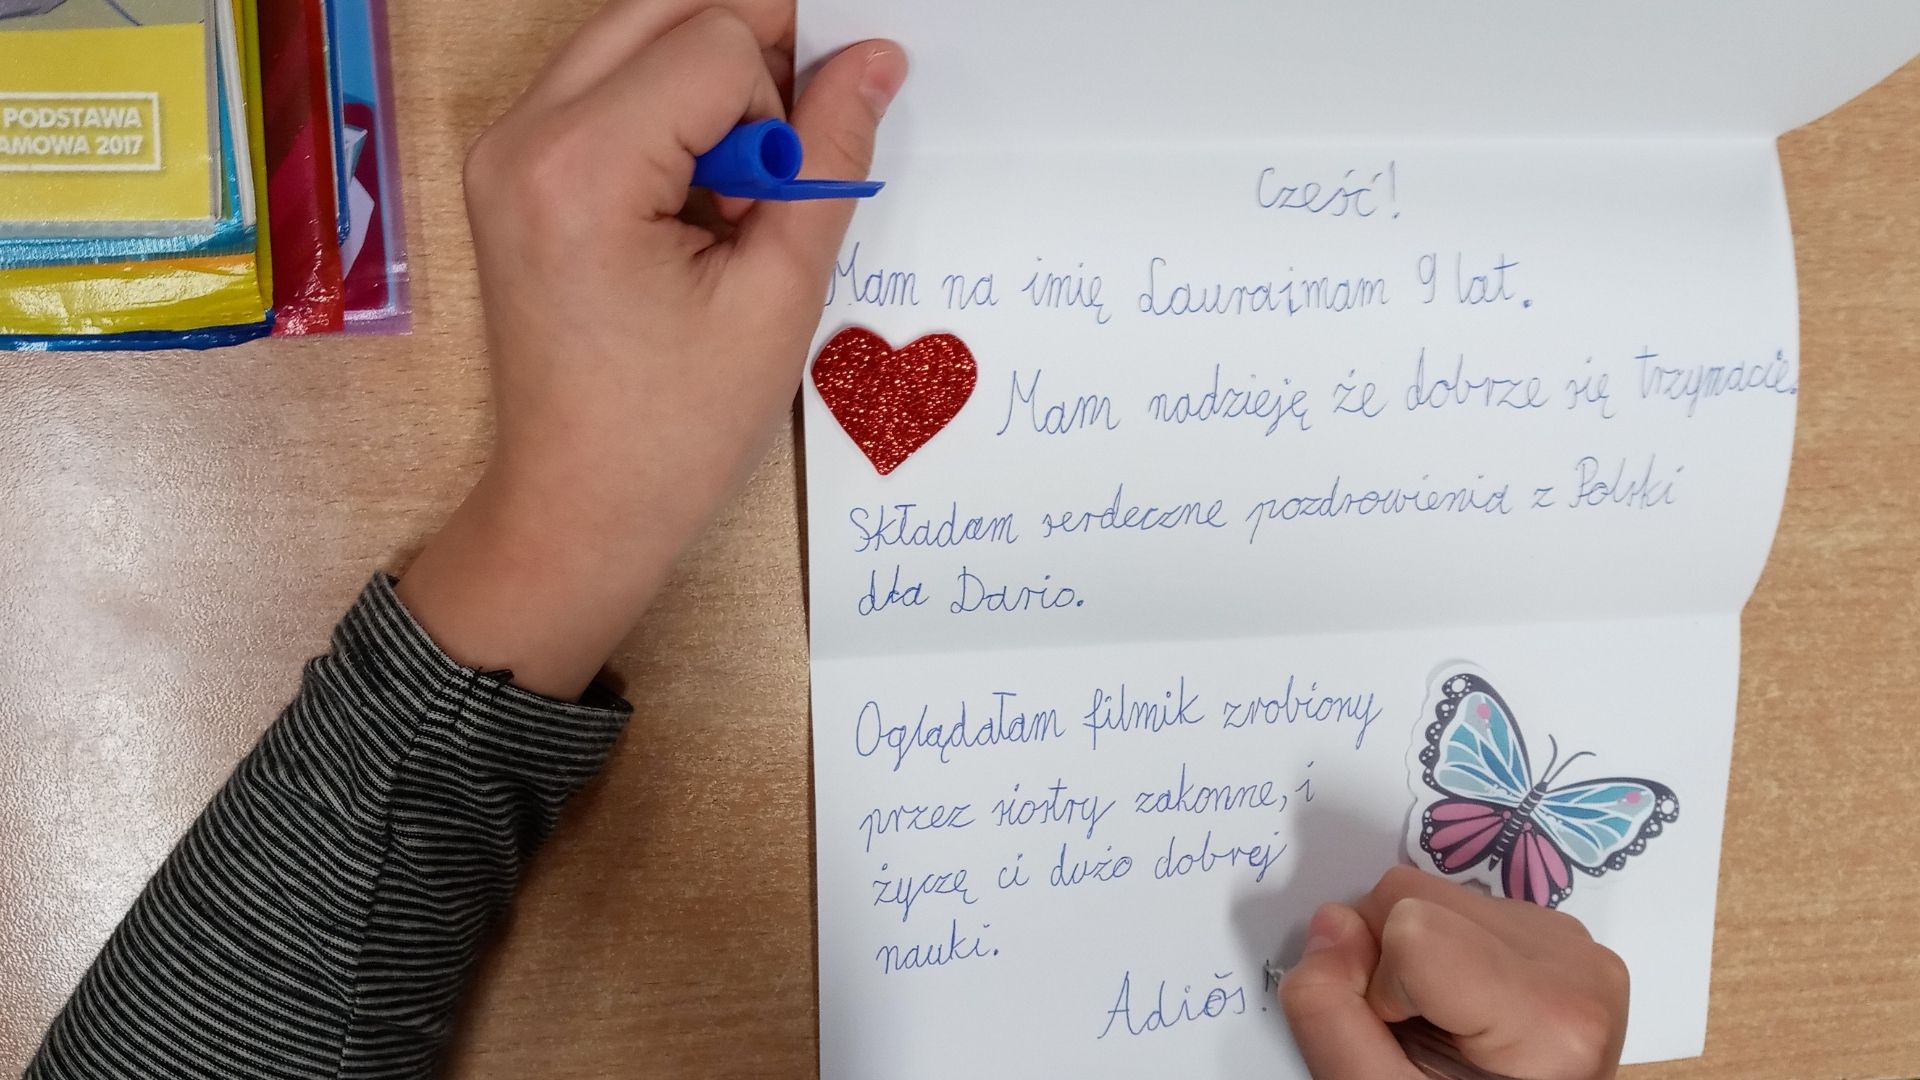 PODSTAWA
AMOWA 2017
Cześć!
Mam na imię Laura i mam 9 lat.
Mam nadzieję że dobrze się trzymacie.
Składam serdeczne pozdrowienia z Polski
dla Dario.
Oglądałam filmik zrobiony
przez siostry zakonne, i
życzę ci dużo dobrej
nauki.
Adiős!